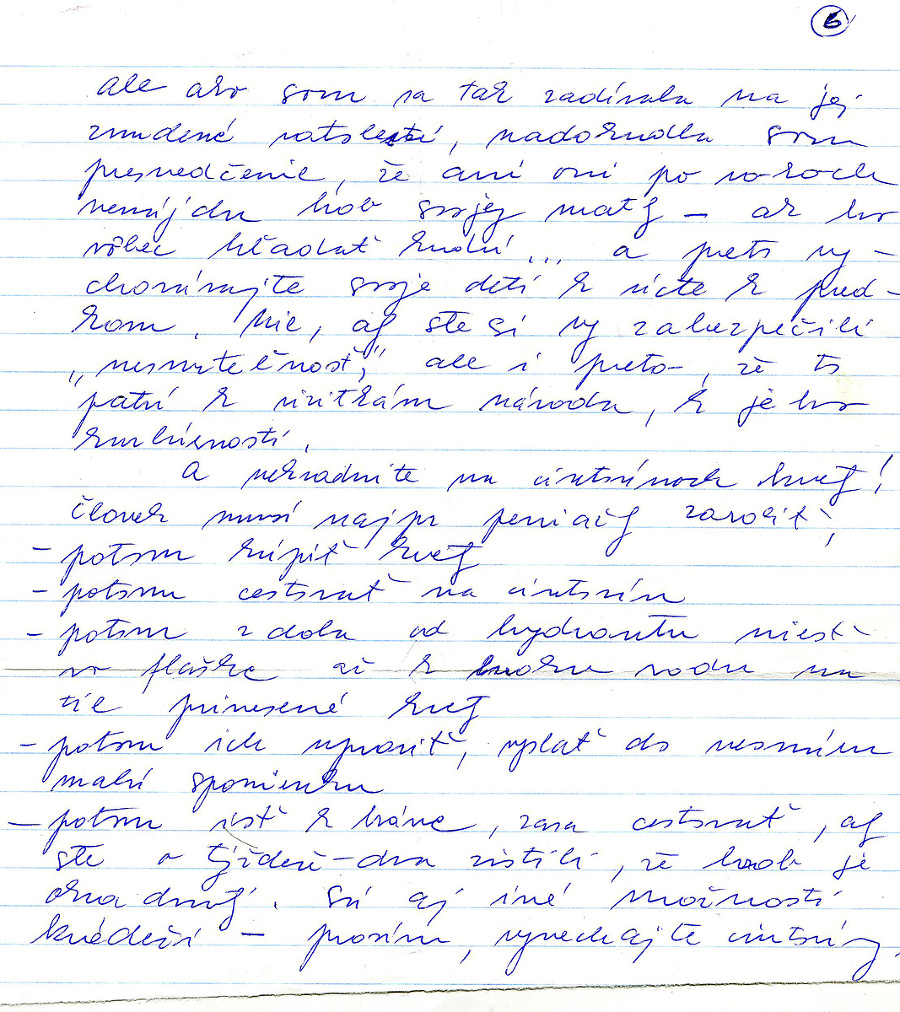 6
ale ako som sa tak zadívala na jej
znudené ratolesti, nadobudla som
presvedčenie, že ani oni po rokoch
nenájdu hrob svojej matky – ak ho
vôbec hľadať budú ... a preto vy-
chovávajte svoje deti k úcte k pred-
kom. Nie, aby ste si vy zabezpečili
„nesmrteľnosť," ale i preto, že to
patrí k národa, k jeho
kultúrnosti.
A nekradnite na cintorínoch kvety!
človek musí najpr peniažky zarobiť,
– potom kúpiť kvety
– potom cestovať na cintorín
– potom zdola od hydrantu niesť
vo fľaške až k hrobu vodu na
tie prinesené kvety
– potom ich upraviť, vyslať do vesmíru
malú spomienku
– potom ísť k bráne, zasa cestovať, aby
ste o týždeň–dva zistili, že hrob je
okradnutý. Sú aj iné možnosti
krádeží – prosím, vynechajte cintoríny.